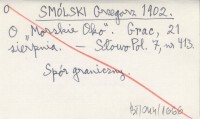 SMÓLSKI Grzegorz 1902.
O „Morskie Oko". Grac, 21
sierpnia. — Słowo Pol. 7, nr 413.
Spór graniczny.